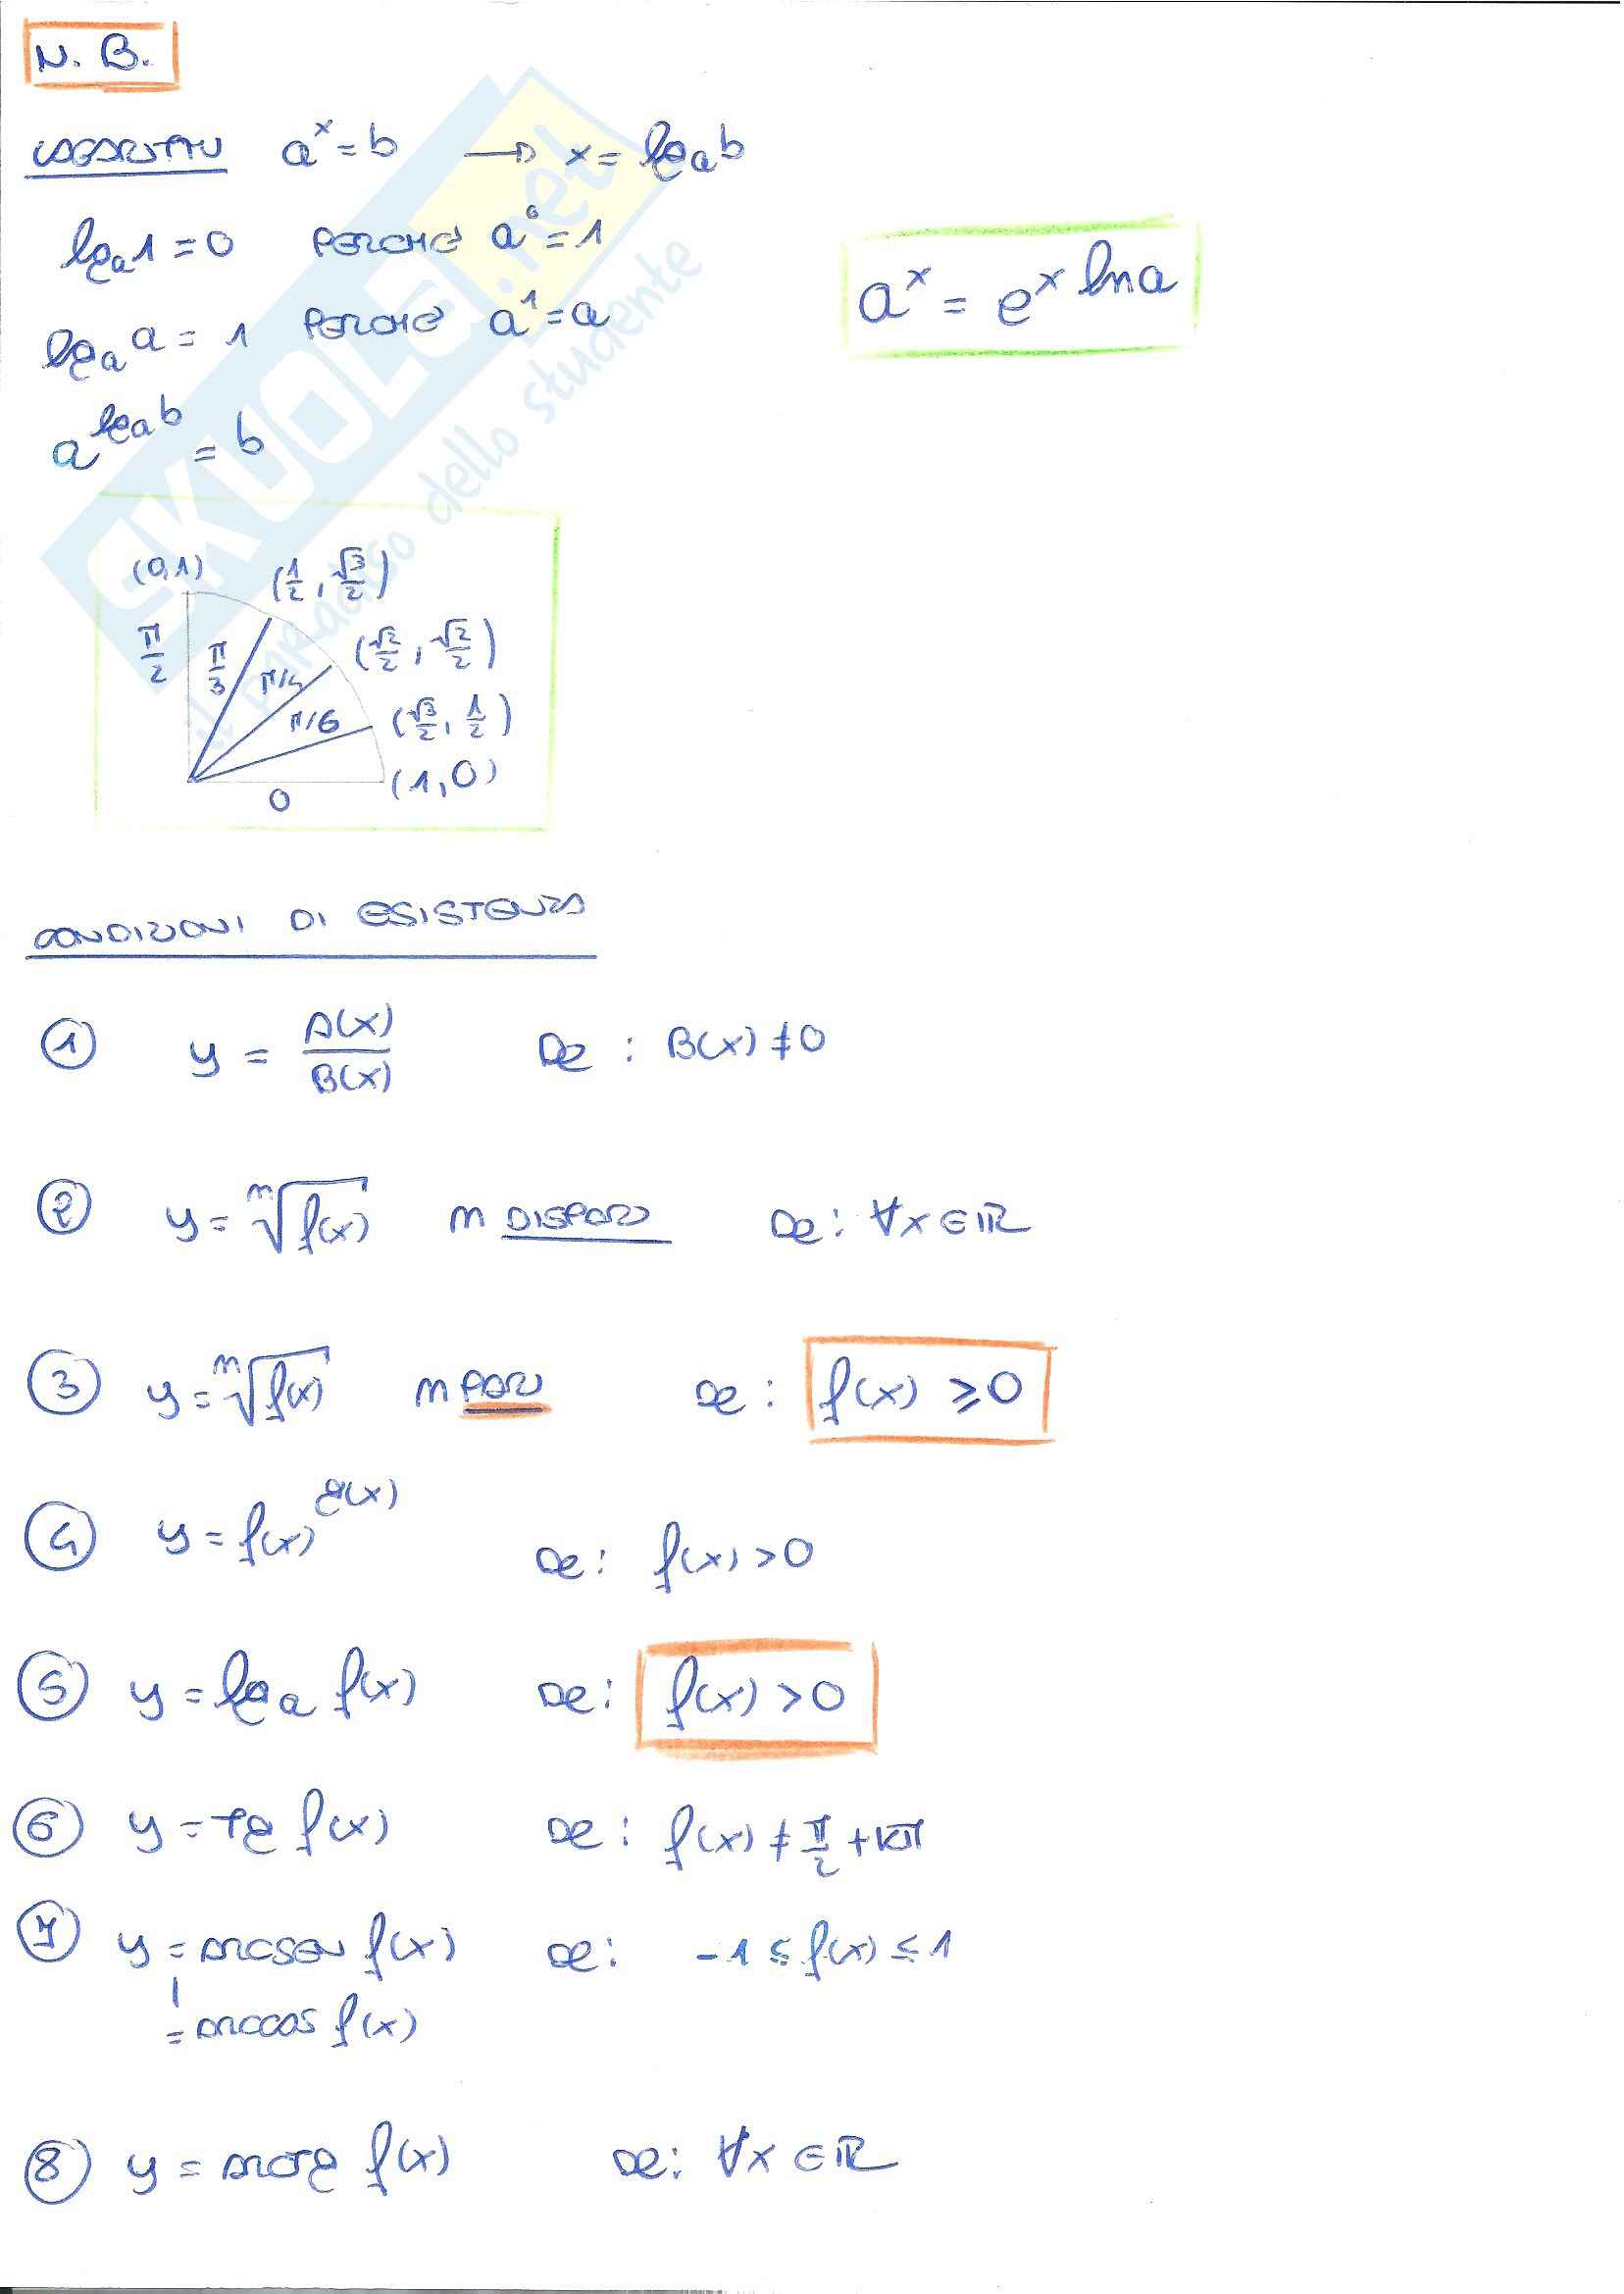 N. B.
LOGARITMI aˣ = b → x = logₐb
logₐ1 = 0 PERCHÈ a⁰ = 1
logₐa = 1 PERCHÈ a¹ = a
aˣ = e^(x ln a)
a^(logₐb) = b
(0,1) (1/2, √3/2)
π/2 π/3 π/4 (√2/2, √2/2)
π/6 (√3/2, 1/2)
0 (1,0)
SKUOLA.net
il paradiso dello studente
CONDIZIONI DI ESISTENZA
① y = A(x)/B(x) De : B(x) ≠ 0
② y = ⁿ√f(x) n DISPARI De : ∀x ∈ ℝ
③ y = ⁿ√f(x) n PARI De : f(x) ≥ 0
④ y = f(x)^g(x) De : f(x) > 0
⑤ y = logₐ f(x) De : f(x) > 0
⑥ y = tg f(x) De : f(x) ≠ π/2 + kπ
⑦ y = arcsen f(x) De : -1 ≤ f(x) ≤ 1
= arccos f(x)
⑧ y = arctg f(x) De : ∀x ∈ ℝ